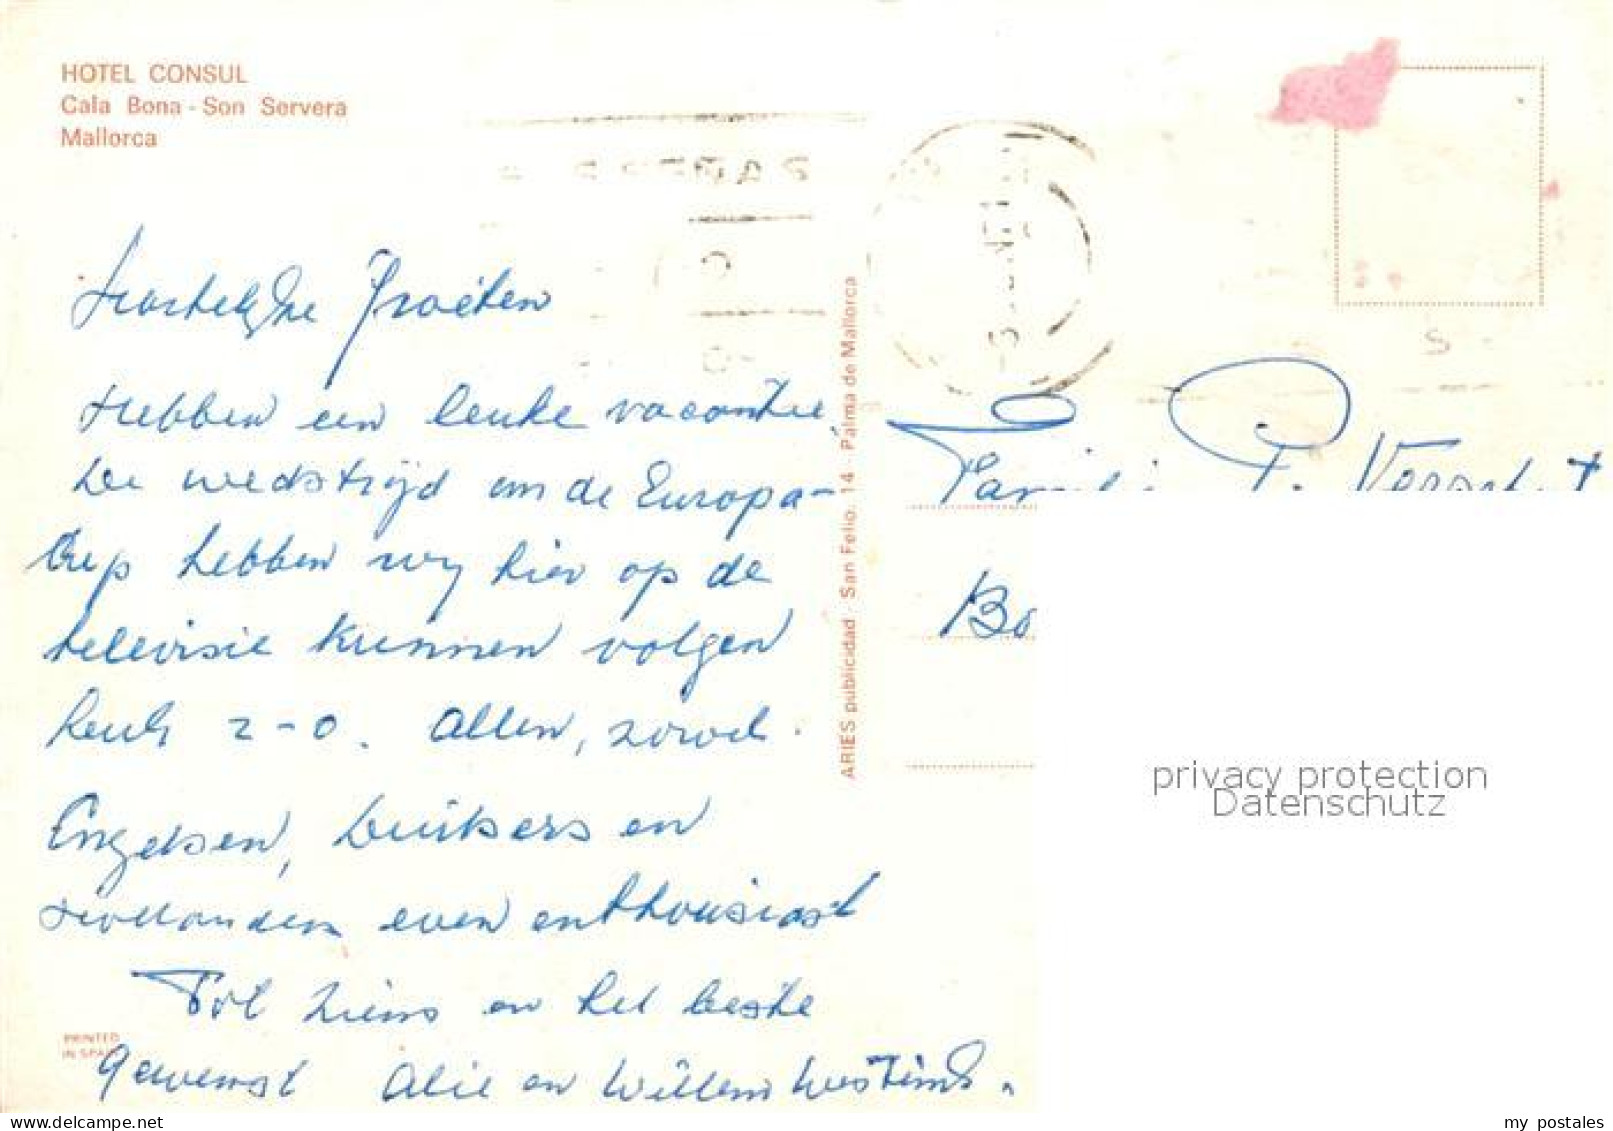 HOTEL CONSUL
Cala Bona - Son Servera
Mallorca
Hartelijke Groeten
Hebben een leuke vacantie,
De wedstrijd om de Europa-
Cup hebben wij hier op de
televisie kunnen volgen
Leuk 2-0. Allen, zowel
Engelsen, Duitsers en
Hollanders even enthousiast
Tot ziens en het beste
gewenst Alie en Willem
PRINTED
IN SPAIN
ARIES publicidad - San Felio, 14 - Palma de Mallorca
Familie P.
Bo
privacy protection
Datenschutz
www.delcampe.net
my_postales